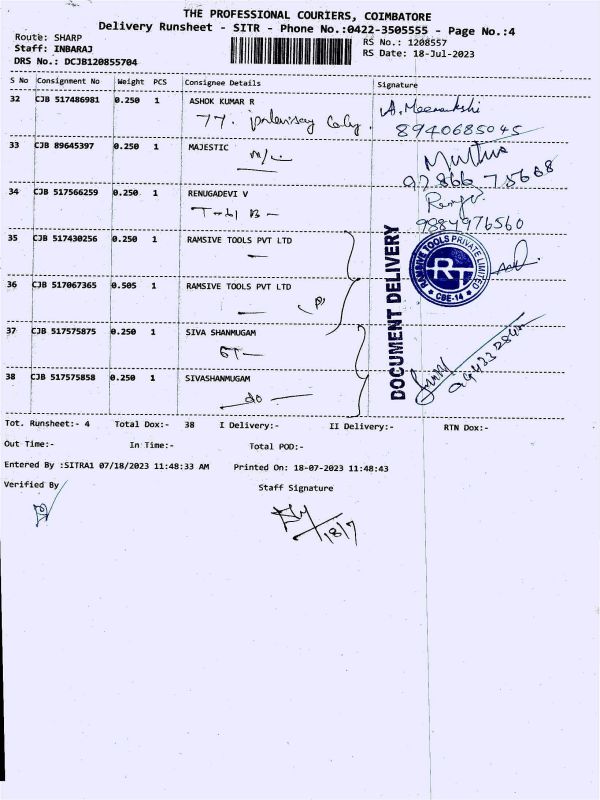 THE PROFESSIONAL COURIERS, COIMBATORE
Delivery Runsheet - SITR - Phone No.:0422-3505555 - Page No.:4
Route: SHARP
RS No.: 1208557
Staff: INBARAJ
RS Date: 18-Jul-2023
DRS No.: DCJB120855704
S No Consignment No Weight PCS Consignee Details Signature
32 CJB 517486981 0.250 1 ASHOK KUMAR R A. Meenakshi
77.
8940685045
33 CJB 89645397 0.250 1 MAJESTIC
34 CJB 517566259 0.250 1 RENUGADEVI V
9884976560
35 CJB 517430256 0.250 1 RAMSIVE TOOLS PVT LTD
RAMSIVE TOOLS PRIVATE LIMITED
RT
CBE-14
DOCUMENT DELIVERY
36 CJB 517067365 0.505 1 RAMSIVE TOOLS PVT LTD
37 CJB 517575875 0.250 1 SIVA SHANMUGAM
38 CJB 517575858 0.250 1 SIVASHANMUGAM
do
Tot. Runsheet:- 4 Total Dox:- 38 I Delivery:- II Delivery:- RTN Dox:-
Out Time:- In Time:- Total POD:-
Entered By :SITRA1 07/18/2023 11:48:33 AM Printed On: 18-07-2023 11:48:43
Verified By Staff Signature
18/7